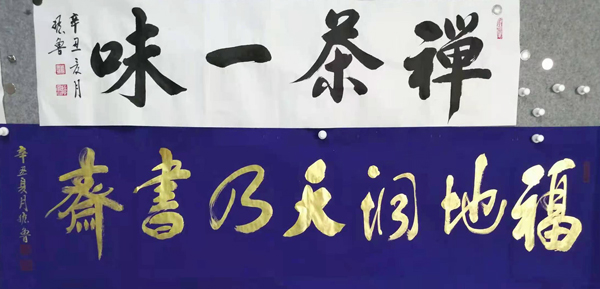 禪茶一味
辛丑夏月
魯
福地洞天乃書齋
辛丑夏月 魯